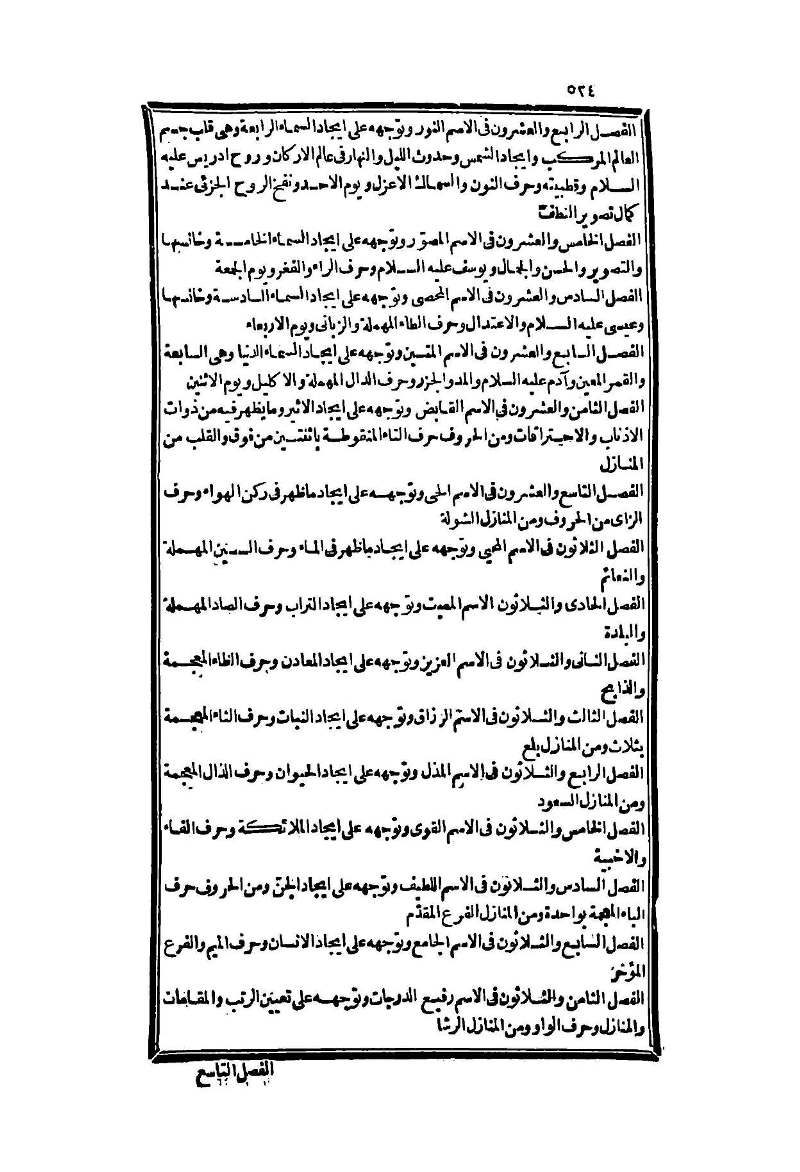 ٥٢٤
الفصل الرابع والعشرون في الاسم النور وتوجهه على ايجاد السماء الرابعة وهي قلب جسم
العالم المركب وايجاد الشمس وحدوث الليل والنهار في عالم الاركان وروح ادريس عليه
السلام وقطبيته وحرف النون والسماك الاعزل ويوم الاحد ونفخ الروح الجزئي عند
كمال تصوير النطف
الفصل الخامس والعشرون في الاسم المصوّر وتوجهه على ايجاد السماء الخامسة وخانسها
والتصوير والحسن والجمال ويوسف عليه السلام وحرف الراء والغفر ويوم الجمعة
الفصل السادس والعشرون في الاسم المحصى وتوجهه على ايجاد السماء السادسة وخانسها
وعيسى عليه السلام والاعتدال وحرف الطاء المهملة والزبانى ويوم الاربعاء
الفصل السابع والعشرون في الاسم المتين وتوجهه على ايجاد السماء الدنيا وهي السابعة
والقمر المعين وآدم عليه السلام والمد والجزر وحرف الدال المهملة والاكليل ويوم الاثنين
الفصل الثامن والعشرون في الاسم القابض وتوجهه على ايجاد الاثير وما يظهر فيه من ذوات
الاذناب والاحتراقات ومن الحروف حرف التاء المنقوطة باثنتين من فوق والقلب من
المنازل
الفصل التاسع والعشرون في الاسم الحي وتوجهه على ايجاد ما ظهر في ركن الهواء وحرف
الزاى من الحروف ومن المنازل الشولة
الفصل الثلاثون في الاسم المحيى وتوجهه على ايجاد ما ظهر في الماء وحرف السين المهملة
والنعائم
الفصل الحادى والثلاثون الاسم المميت وتوجهه على ايجاد التراب وحرف الصاد المهملة
والبلدة
الفصل الثاني والثلاثون في الاسم العزيز وتوجهه على ايجاد المعادن وحرف الظاء المعجمة
والذابح
الفصل الثالث والثلاثون في الاسم الرزاق وتوجهه على ايجاد النبات وحرف الثاء المعجمة
بثلاث ومن المنازل بلع
الفصل الرابع والثلاثون في الاسم المذل وتوجهه على ايجاد الحيوان وحرف الذال المعجمة
ومن المنازل السعود
الفصل الخامس والثلاثون في الاسم القوى وتوجهه على ايجاد الملائكة وحرف الفاء
والاخبية
الفصل السادس والثلاثون في الاسم اللطيف وتوجهه على ايجاد الجنّ ومن الحروف حرف
الباء المعجمة بواحدة ومن المنازل الفرع المقدّم
الفصل السابع والثلاثون في الاسم الجامع وتوجهه على ايجاد الانسان وحرف الميم والفرع
المؤخر
الفصل الثامن والثلاثون في الاسم رفيع الدرجات وتوجهه على تعيين الرتب والمقامات
والمنازل وحرف الواو ومن المنازل الرشا
الفصل التاسع